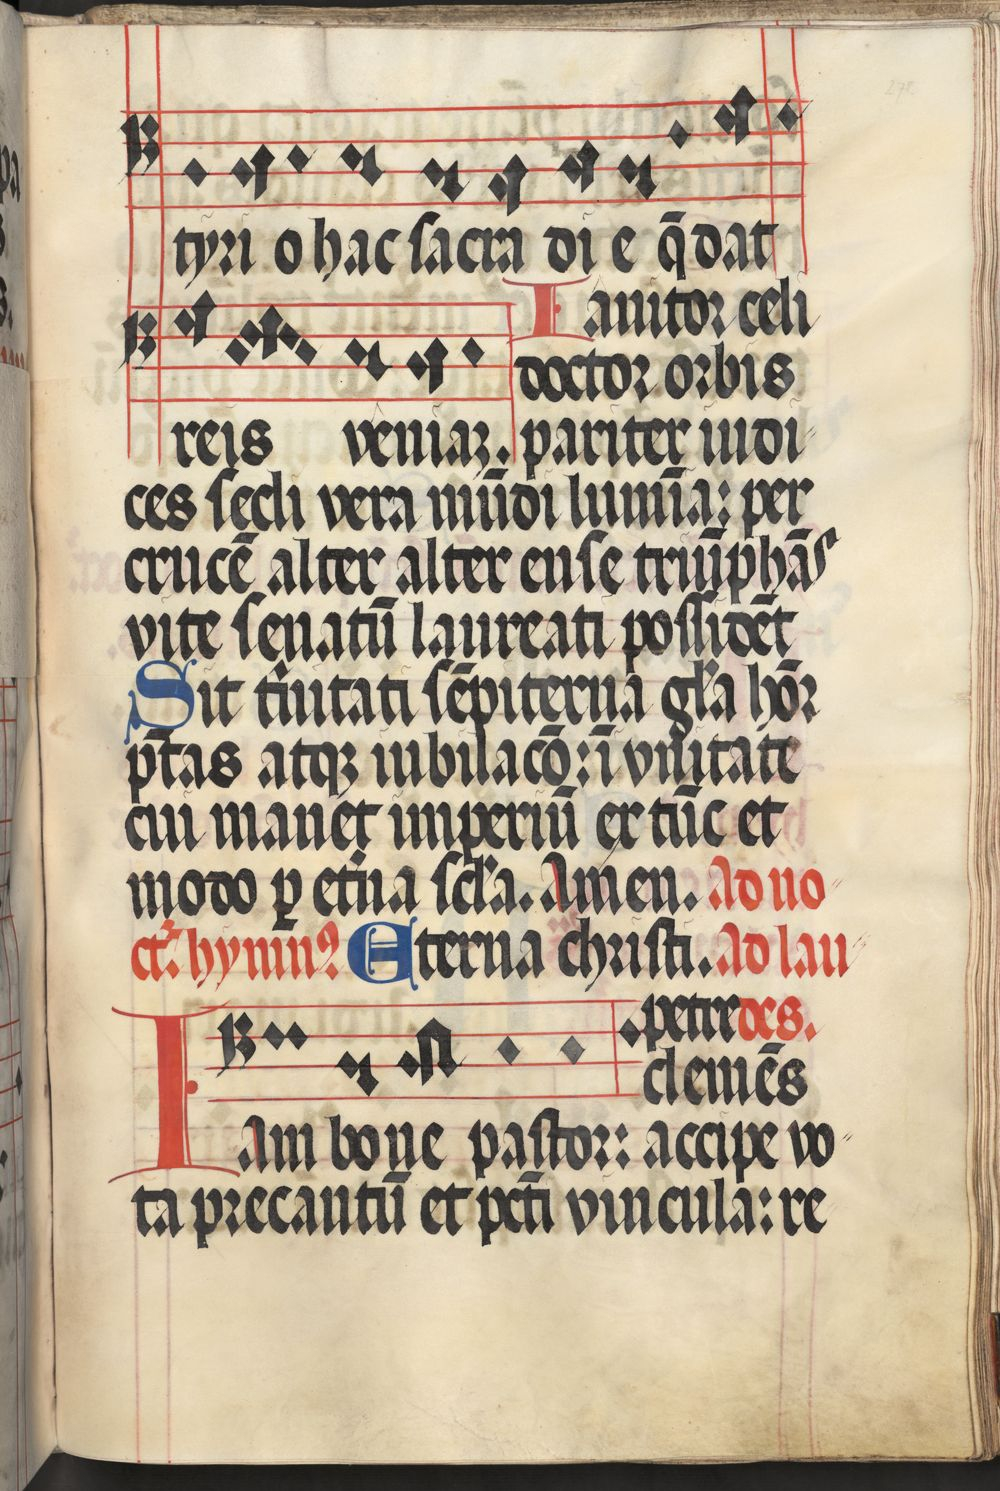 tyri o hac sacra di e q̄ dat
Ianitor celi
doctor orbis
reis veniaꝫ. pariter iudi
ces secli vera mūdi lumīa: per
crucē alter alter ense triūphās
vite senatū laureati possidēt
Sit tⁱnitati sēpiterna gl̄a hōr
pt̄as atqꝫ iubilacō: ī vnitate
cui manet imperiū ex tūc et
modo ꝑ et̄na scl̄a. Amen. Ad no
ct̄. hymnꝰ Eterna christi. Ad lau
des.
Iam bone pastor petre
clemēs
accipe vo
ta precantū et pct̄i vincula: re